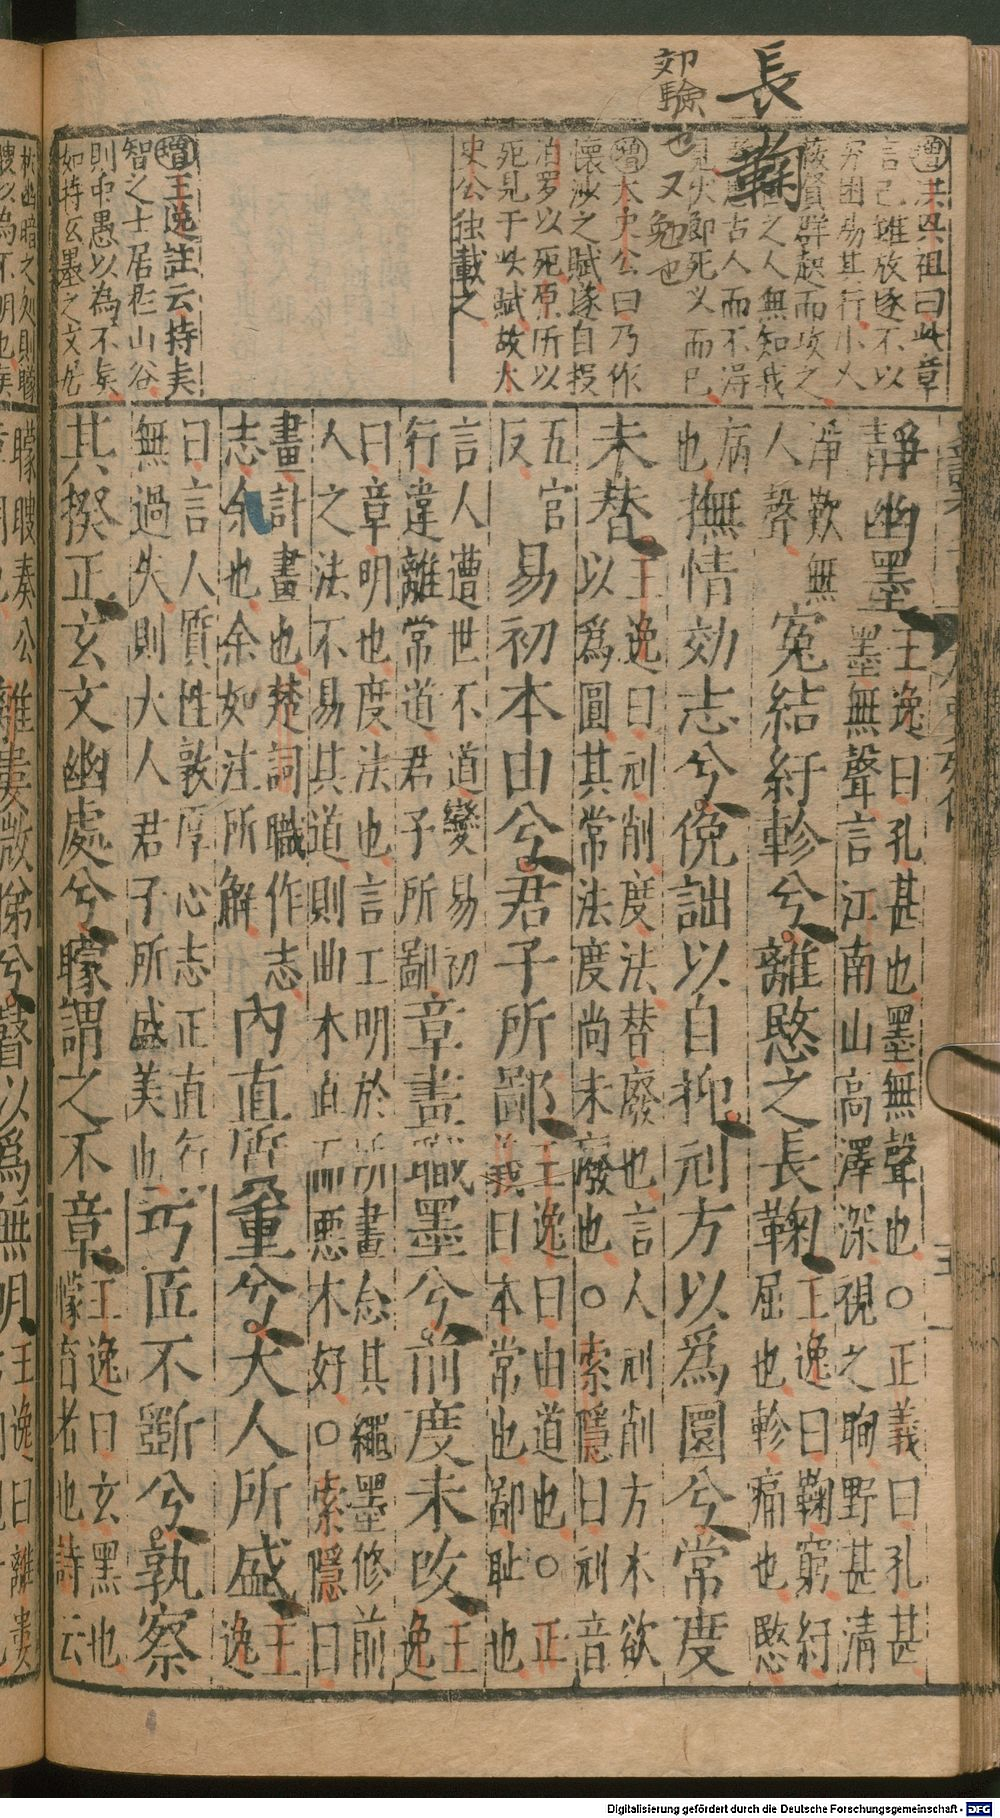 長鞠
郊驗
也又勉也
增洪興祖曰此章
言己雖放逐不以
窮困易其行小人
蔽賢群起而攻之
之人無知我
古人而不得
見火即死义而已
增太史公曰乃作
懷沙之賦遂自投
泊罗以死原所以
死見于此賦故太
史公独載之
增王逸註云持玄
智之士居於山谷
則中愚以為不矣
如持玄墨之文居
靜幽墨
王逸曰孔甚也墨無聲也○正義曰孔甚
墨無聲言江南山高澤深視之眴野甚清
淨歎無
人聲
冤結紆軫兮離愍之長鞠
王逸曰鞠窮紆
屈也軫痛也愍
病
也
撫情効志兮俛詘以自抑刓方以爲圓兮常度
未替
王逸曰刓削度法替廢也言人刓削方木欲
以爲圓其常法度尚未廢也○索隱曰刓音
五官
反
易初本由兮君子所鄙
王逸曰由道也○正
義曰本常也鄙耻也
言人遭世不道變易初
行違離常道君子所鄙
章畫職墨兮前度未改
王
逸
曰章明也度法也言工明於所畫念其繩墨修前
人之法不易其道則曲木直而惡木好○索隱曰
畫計畫也楚詞職作志
志余也余如注所解
內直質重兮大人所盛
王
逸
曰言人質性敦厚心志正直行
無過失則大人君子所盛美也
巧匠不斲兮孰察
其揆正玄文幽處兮矇謂之不章
王逸曰玄黑也
矇盲者也詩云
矇瞍奏公
離婁微睇兮瞽以爲無明
王逸曰離婁
Digitalisierung gefördert durch die Deutsche Forschungsgemeinschaft - DFG